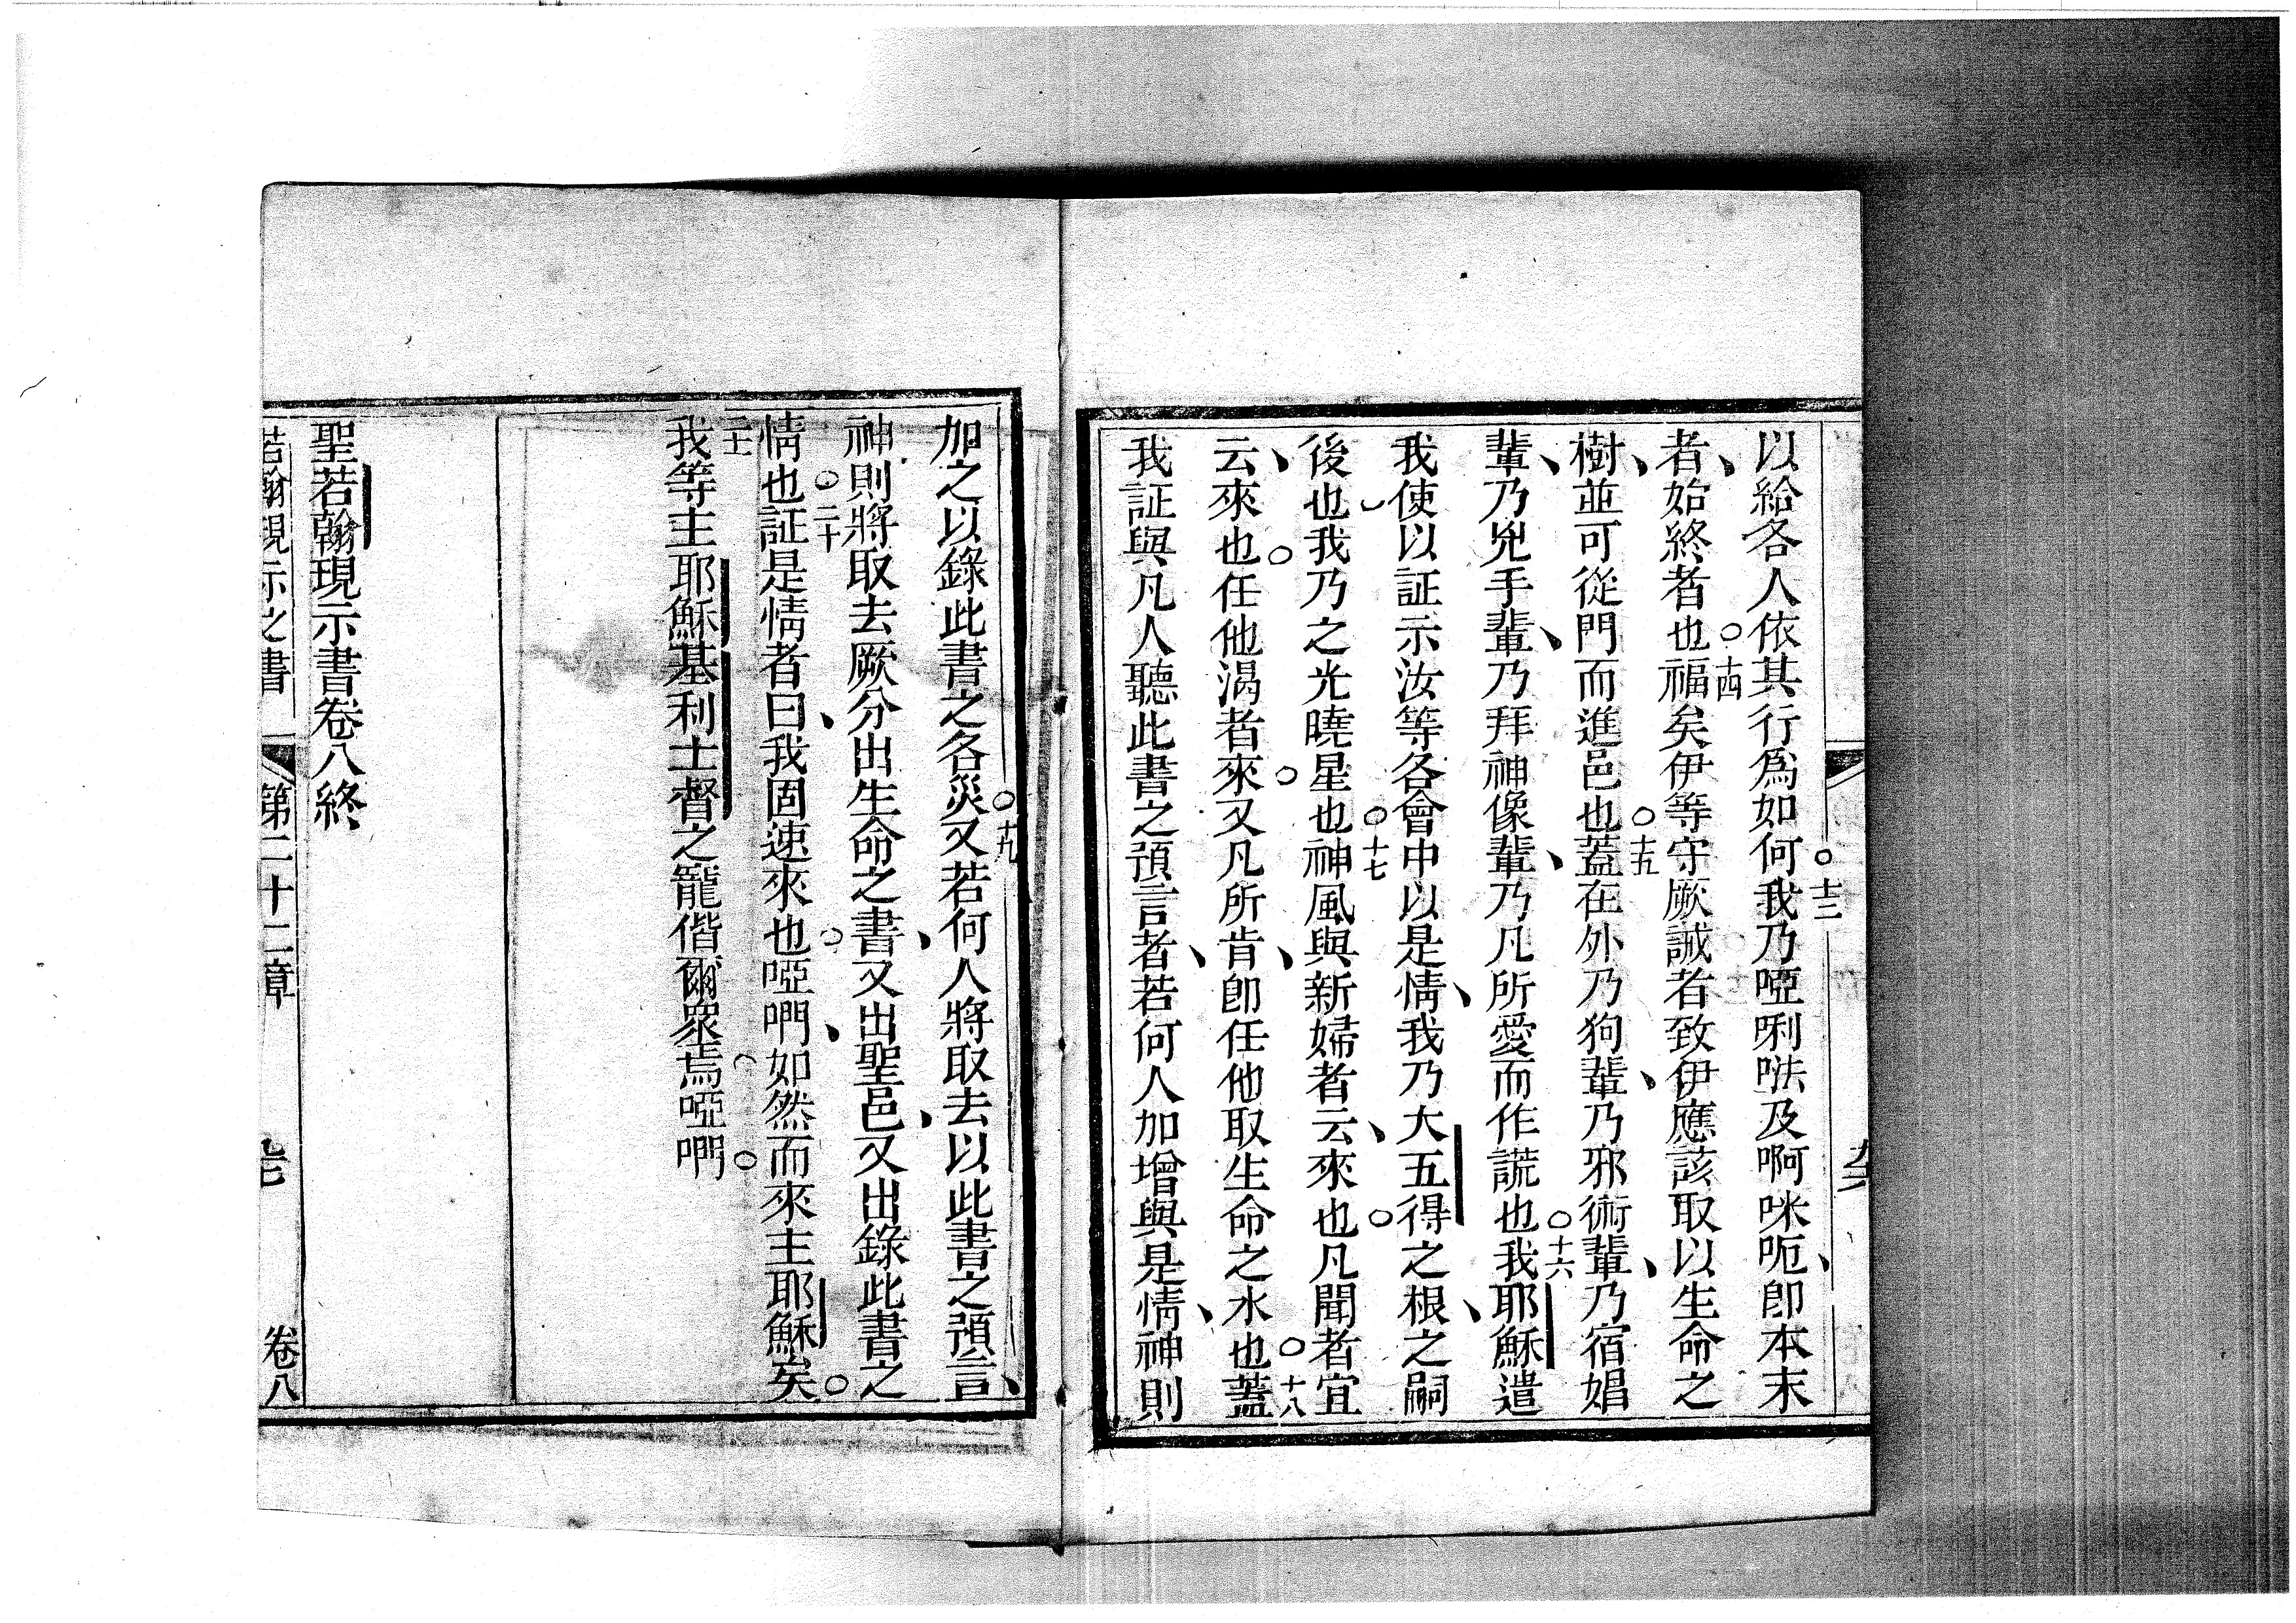 以給各人依其行爲如何。十三我乃啞唎呠及啊咪呃、即本末
者、始終者也。十四福矣伊等守厥誡者致伊應該取以生命之
樹、並可從門而進邑也。十五蓋在外乃狗輩、乃邪術輩、乃宿娼
輩、乃兇手輩、乃拜神像輩、乃凡所愛而作謊也。十六我耶穌遣
我使以証示汝等各會中以是情、我乃大五得之根、之嗣
後也、我乃之光曉星也。十七神風與新婦者云、來也。凡聞者宜
云、來也。任他渴者來。又凡所肯、即任他取生命之水也。十八蓋
我証與凡人聽此書之預言者、若何人加增與是情、神則
加之以錄此書之各災。十九又若何人將取去以此書之預言、
神則將取去厥分出生命之書、又出聖邑、又出錄此書之
情也。二十証是情者曰、我固速來也。啞們、如然而來主耶穌矣。
二十一我等主耶穌基利士督之寵偕爾衆焉。啞們。
聖若翰現示書卷八終
若翰現示之書 第二十二章 卷八